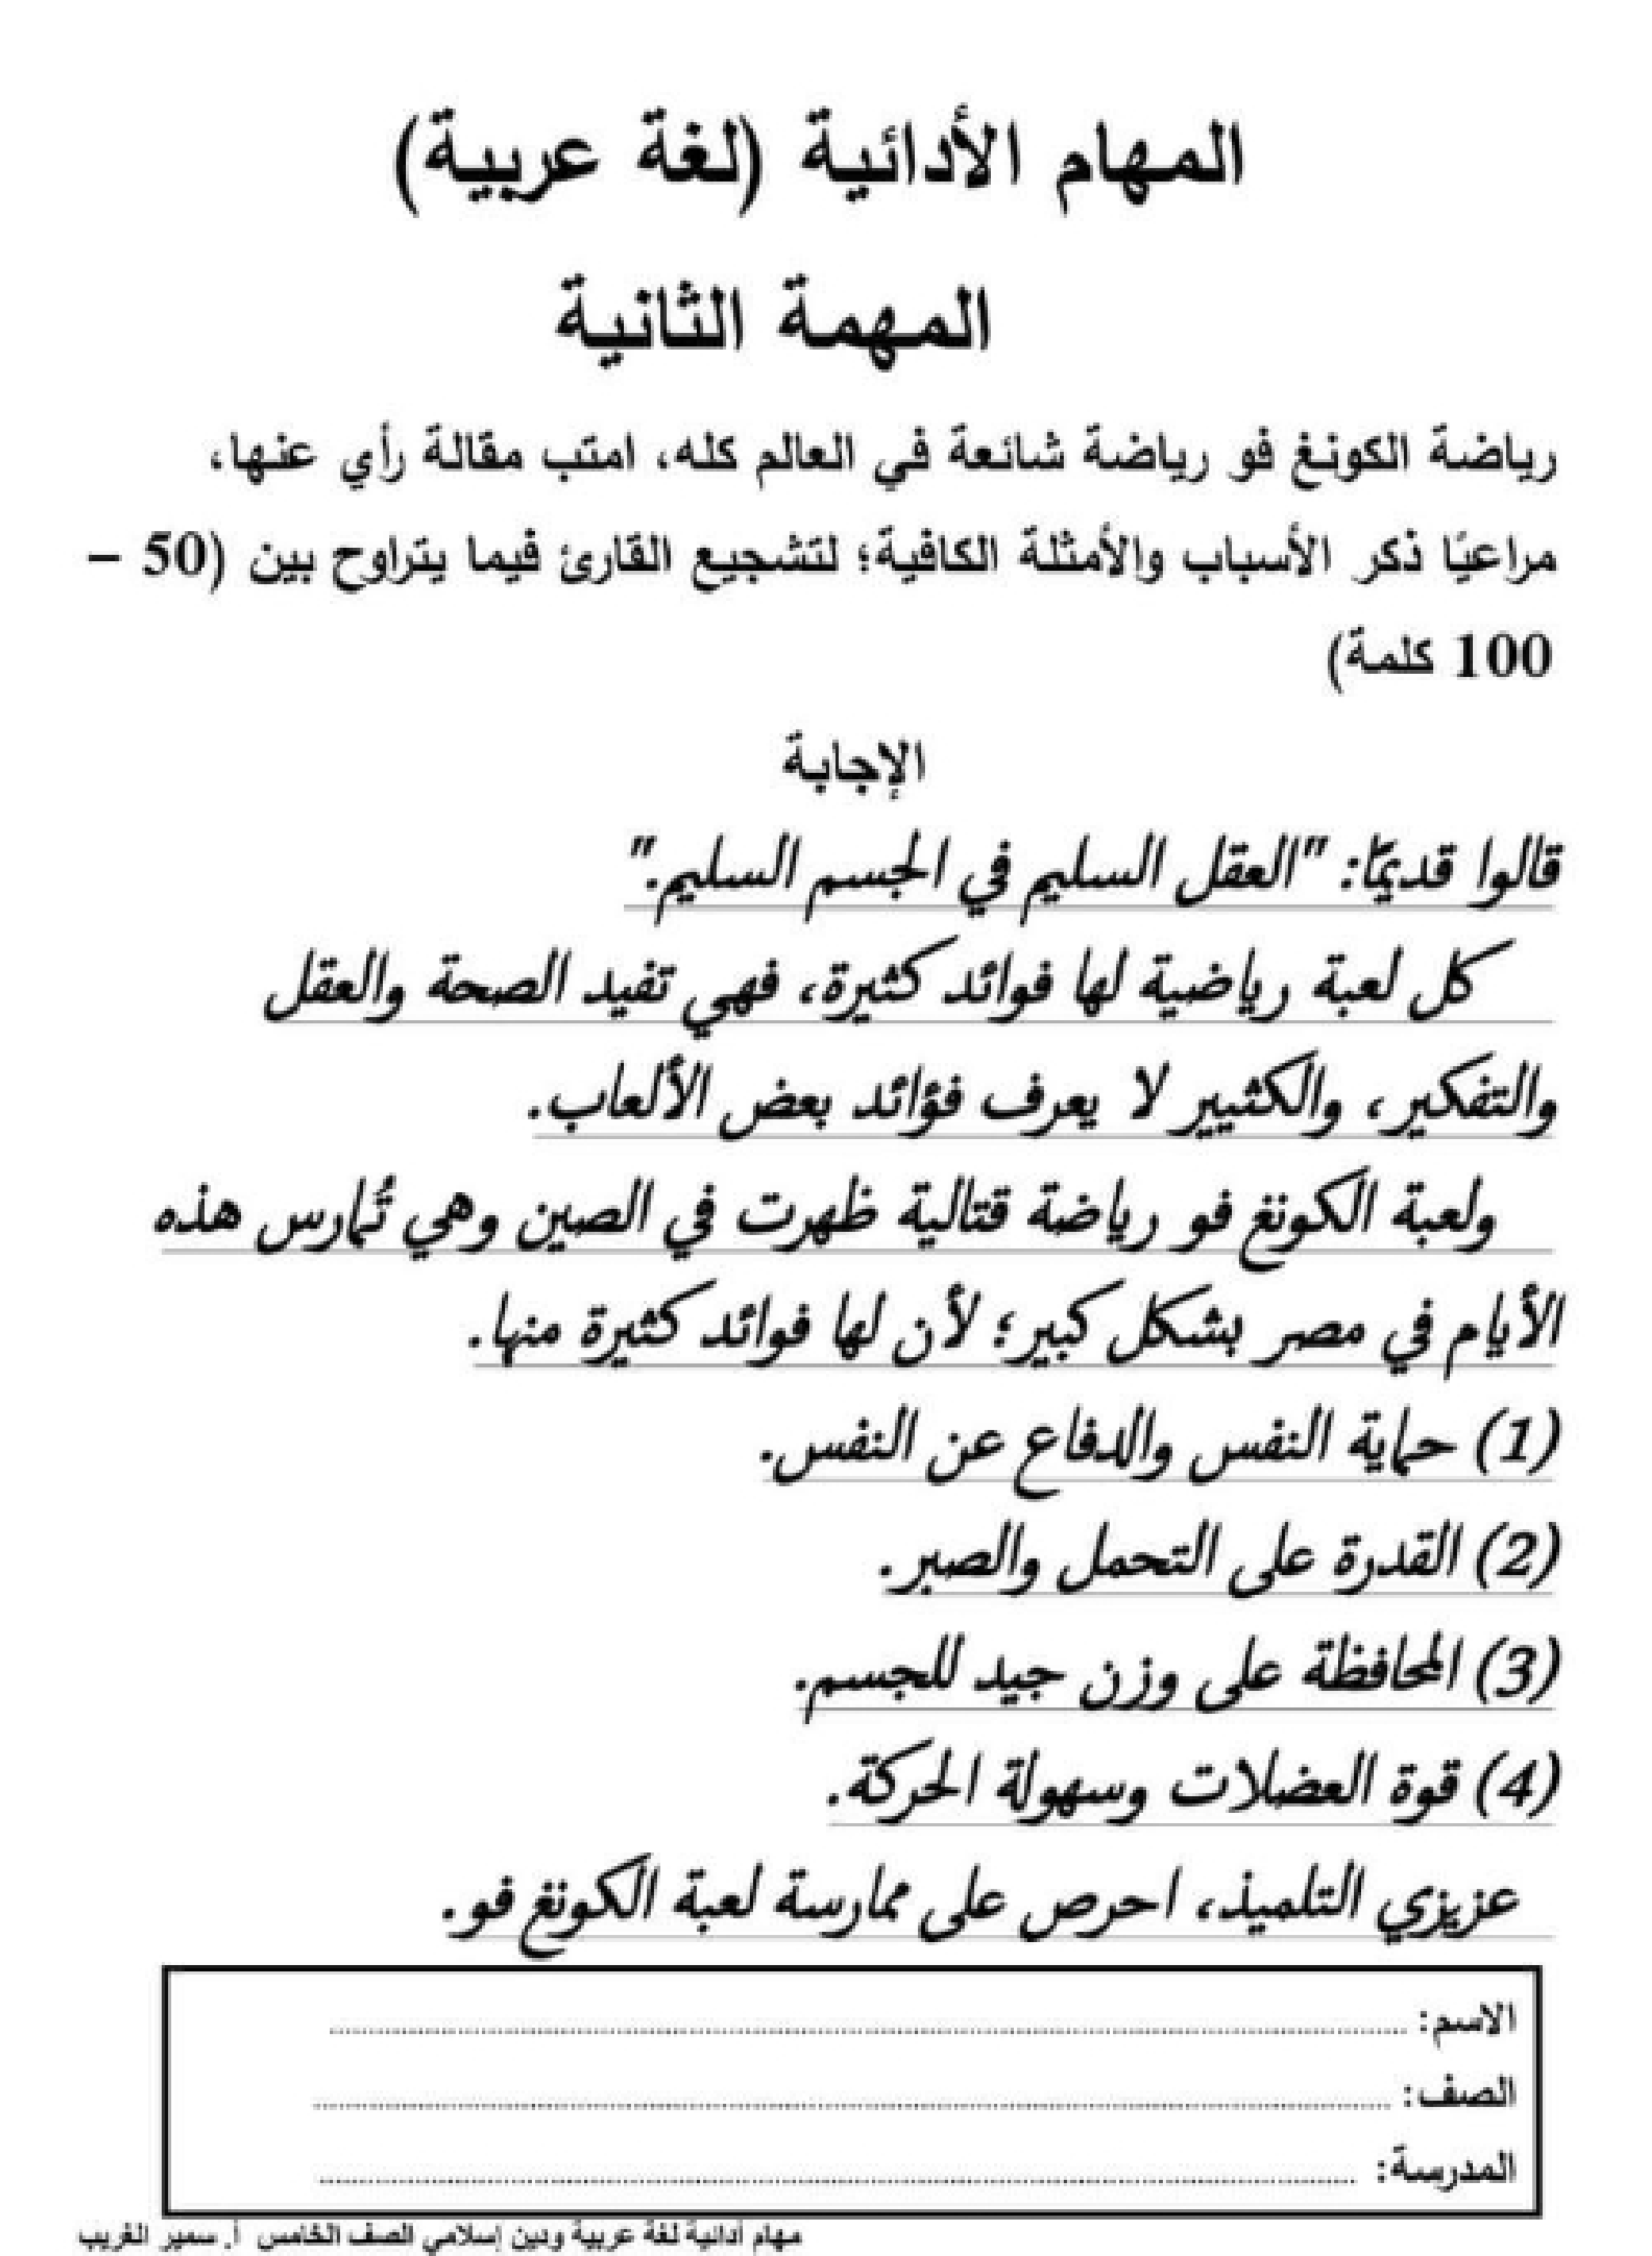 المهام الأدائية (لغة عربية)
المهمة الثانية
رياضة الكونغ فو رياضة شائعة في العالم كله، امتب مقالة رأي عنها،
مراعيًا ذكر الأسباب والأمثلة الكافية؛ لتشجيع القارئ فيما يتراوح بين (50 –
100 كلمة)
الإجابة
قالوا قديمًا: "العقل السليم في الجسم السليم."
كل لعبة رياضية لها فوائد كثيرة، فهي تفيد الصحة والعقل
والتفكير، والكثيير لا يعرف فؤائد بعض الألعاب.
ولعبة الكونغ فو رياضة قتالية ظهرت في الصين وهي تُمارس هذه
الأيام في مصر بشكل كبير؛ لأن لها فوائد كثيرة منها.
(1) حماية النفس والدفاع عن النفس.
(2) القدرة على التحمل والصبر.
(3) المحافظة على وزن جيد للجسم.
(4) قوة العضلات وسهولة الحركة.
عزيزي التلميذ، احرص على ممارسة لعبة الكونغ فو.
الاسم:
الصف:
المدرسة:
مهام أدائية لغة عربية ودين إسلامي الصف الخامس أ. سمير الغريب